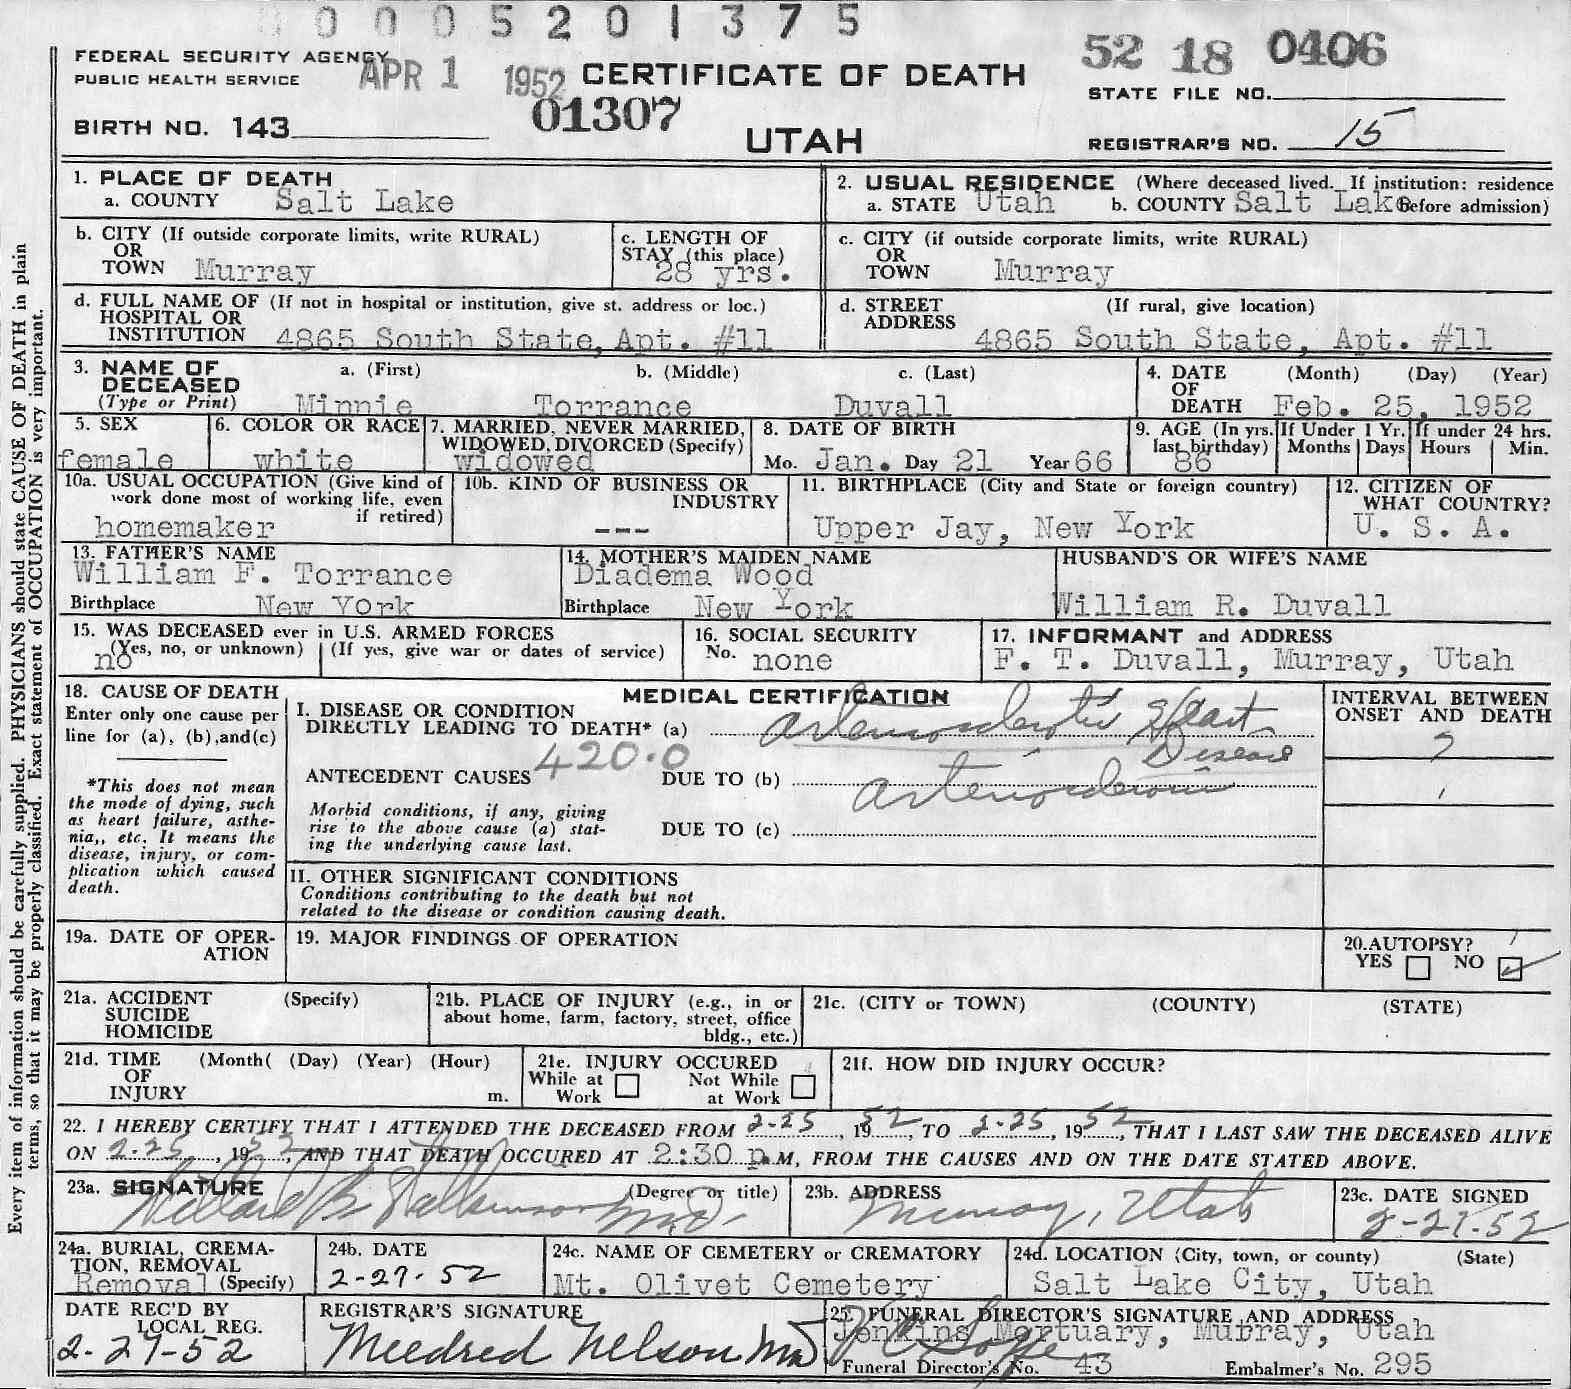 0 0 0 5 2 0 1 3 7 5
FEDERAL SECURITY AGENCY
PUBLIC HEALTH SERVICE
APR 1 1952
CERTIFICATE OF DEATH
52 18 0406
STATE FILE NO.
BIRTH NO. 143
01307
UTAH
REGISTRAR'S NO. 15
1. PLACE OF DEATH
a. COUNTY Salt Lake
2. USUAL RESIDENCE (Where deceased lived. If institution: residence
a. STATE Utah b. COUNTY Salt Lake before admission)
b. CITY (If outside corporate limits, write RURAL)
OR
TOWN Murray
c. LENGTH OF
STAY (this place)
28 yrs.
c. CITY (if outside corporate limits, write RURAL)
OR
TOWN Murray
d. FULL NAME OF (If not in hospital or institution, give st. address or loc.)
HOSPITAL OR
INSTITUTION 4865 South State, Apt. #11
d. STREET (If rural, give location)
ADDRESS 4865 South State, Apt. #11
3. NAME OF
DECEASED
(Type or Print)
a. (First) b. (Middle) c. (Last)
Minnie Torrance Duvall
4. DATE (Month) (Day) (Year)
OF
DEATH Feb. 25, 1952
5. SEX
female
6. COLOR OR RACE
white
7. MARRIED, NEVER MARRIED,
WIDOWED, DIVORCED (Specify)
widowed
8. DATE OF BIRTH
Mo. Jan. Day 21 Year 66
9. AGE (In yrs.
last birthday)
86
If Under 1 Yr.
Months Days
If under 24 hrs.
Hours Min.
10a. USUAL OCCUPATION (Give kind of
work done most of working life, even
if retired)
homemaker
10b. KIND OF BUSINESS OR
INDUSTRY
---
11. BIRTHPLACE (City and State or foreign country)
Upper Jay, New York
12. CITIZEN OF
WHAT COUNTRY?
U. S. A.
13. FATHER'S NAME
William F. Torrance
Birthplace New York
14. MOTHER'S MAIDEN NAME
Diadema Wood
Birthplace New York
HUSBAND'S OR WIFE'S NAME
William R. Duvall
15. WAS DECEASED ever in U.S. ARMED FORCES
(Yes, no, or unknown) (If yes, give war or dates of service)
no
16. SOCIAL SECURITY
No. none
17. INFORMANT and ADDRESS
F. T. Duvall, Murray, Utah
18. CAUSE OF DEATH
Enter only one cause per
line for (a), (b), and (c)
*This does not mean
the mode of dying, such
as heart failure, asthe-
nia,, etc. It means the
disease, injury, or com-
plication which caused
death.
MEDICAL CERTIFICATION
I. DISEASE OR CONDITION
DIRECTLY LEADING TO DEATH* (a) Arteriosclerotic Heart
Disease
420.0
ANTECEDENT CAUSES DUE TO (b) Arteriosclerosis
Morbid conditions, if any, giving
rise to the above cause (a) stat-
ing the underlying cause last.
DUE TO (c)
INTERVAL BETWEEN
ONSET AND DEATH
?
II. OTHER SIGNIFICANT CONDITIONS
Conditions contributing to the death but not
related to the disease or condition causing death.
19a. DATE OF OPER-
ATION
19. MAJOR FINDINGS OF OPERATION
20. AUTOPSY?
YES NO
21a. ACCIDENT (Specify)
SUICIDE
HOMICIDE
21b. PLACE OF INJURY (e.g., in or
about home, farm, factory, street, office
bldg., etc.)
21c. (CITY or TOWN) (COUNTY) (STATE)
21d. TIME (Month( (Day) (Year) (Hour)
OF
INJURY m.
21e. INJURY OCCURED
While at Work Not While at Work
21f. HOW DID INJURY OCCUR?
22. I HEREBY CERTIFY THAT I ATTENDED THE DECEASED FROM 2-25, 1952, TO 2-25, 1952, THAT I LAST SAW THE DECEASED ALIVE
ON 2-25, 1952, AND THAT DEATH OCCURED AT 2:30 p.M, FROM THE CAUSES AND ON THE DATE STATED ABOVE.
23a. SIGNATURE (Degree or title)
M.D.
23b. ADDRESS
Murray, Utah
23c. DATE SIGNED
2-27-52
24a. BURIAL, CREMA-
TION, REMOVAL
Removal (Specify)
24b. DATE
2-27-52
24c. NAME OF CEMETERY or CREMATORY
Mt. Olivet Cemetery
24d. LOCATION (City, town, or county) (State)
Salt Lake City, Utah
DATE REC'D BY
LOCAL REG.
2-27-52
REGISTRAR'S SIGNATURE
Mildred Nelson MD
25. FUNERAL DIRECTOR'S SIGNATURE AND ADDRESS
Jenkins Mortuary, Murray, Utah
Funeral Director's No. 43 Embalmer's No. 295
Every item of information should be carefully supplied. PHYSICIANS should state CAUSE OF DEATH in plain
terms, so that it may be properly classified. Exact statement of OCCUPATION is very important.